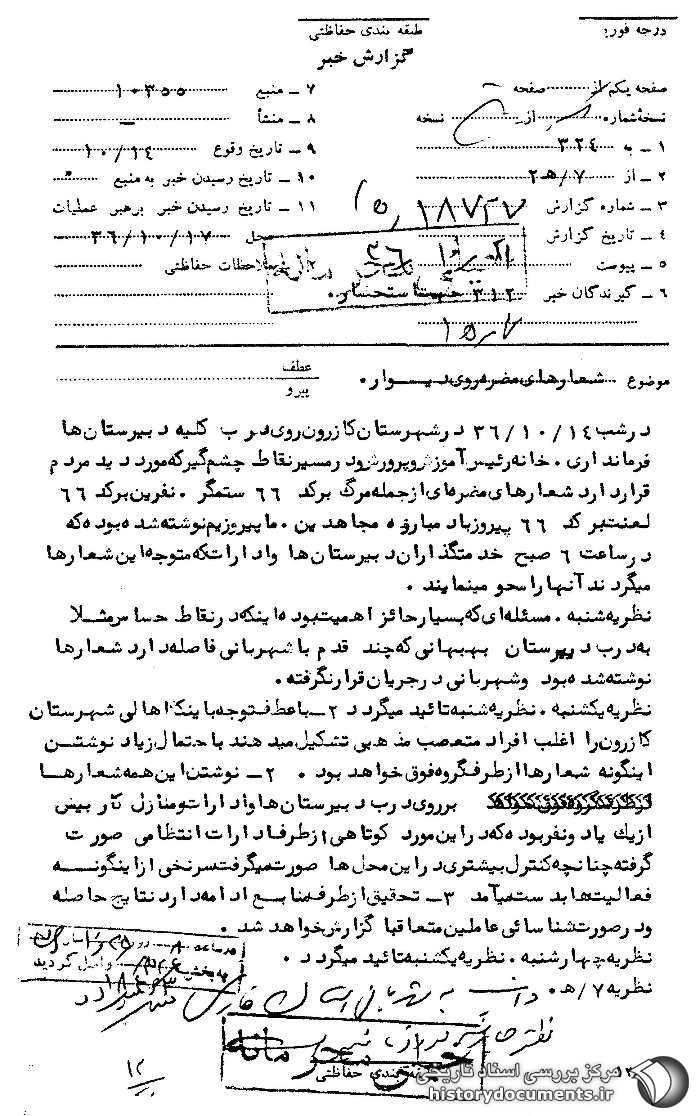 درجه فوری
طبقه بندی حفاظتی
گزارش خبر
صفحه یکم از صفحه
نسخهٔ شماره از نسخه
۱ ـ به ۳۲۴
۲ ـ از ۷/هـ۲
۳ ـ شماره گزارش
۴ ـ تاریخ گزارش
۵ ـ پیوست
۶ ـ گیرندگان خبر ۳۱۲
۷ ـ منبع ۱۰۳۵۵
۸ ـ منشأ ـ
۹ ـ تاریخ وقوع ۱۰/۱۴
۱۰ ـ تاریخ رسیدن خبر به منبع
۱۱ ـ تاریخ رسیدن خبر برهبر عملیات
محل ۳۶/۱۰/۱۷
ملاحظات حفاظتی
جهت استحضار.
موضوع شعارهای مضره روی دیوار.
عطف
پیرو
درشب ۳۶/۱۰/۱۴ درشهرستان کازرون روی درب کلیه دبیرستان ها
فرمانداری. خانه رئیس آموزش و پرورش و درمسیر نقاط چشم گیر که مورد دید مردم
قرار دارد شعارهای مضره ای از جمله مرگ بر کد ۶۶ ستمگر. نفرین بر کد ۶۶
لعنت بر کد ۶۶ پیروز باد مبارزه مجاهدین. ما پیروزیم نوشته شده بود که
در ساعت ۶ صبح خدمتگذاران دبیرستان ها و ادارات که متوجه این شعارها
میگردند آنها را محو مینمایند.
نظریه شنبه. مسئله ای که بسیار حائز اهمیت بوده اینکه در نقاط حساس مثلا
به درب دبیرستان بهبهانی که چند قدم با شهربانی فاصله دارد شعارها
نوشته شده بود و شهربانی در جریان قرار نگرفته.
نظریه یکشنبه. نظریه شنبه تائید میگردد ۲ـ با عطف توجه باینکه اهالی شهرستان
کازرون را اغلب افراد متعصب مذهبی تشکیل میدهند با حتمال زیاد نوشتن
اینگونه شعارها از طرف گروه فوق خواهد بود. ۲ـ نوشتن این همه شعارها
بر روی درب دبیرستان ها و ادارات و منازل کار بیش
از یک یا دو نفر بوده که در این مورد کوتاهی از طرف ادارات انتظامی صورت
گرفته چنانچه کنترل بیشتری در این محل ها صورت میگرفت سرنخی از اینگونه
فعالیت ها بدست میآمد ۳ـ تحقیق از طرف منابع ادامه دارد نتایج حاصله
و در صورت شناسائی عاملین متعاقبا گزارش خواهد شد.
نظریه چهارشنبه. نظریه یکشنبه تائید میگردد.
نظریه ۷/هـ.
واصل گردید
خیلی محرمانه
طبقه بندی حفاظتی
۱۲
مرکز بررسی اسناد تاریخی
historydocuments.ir